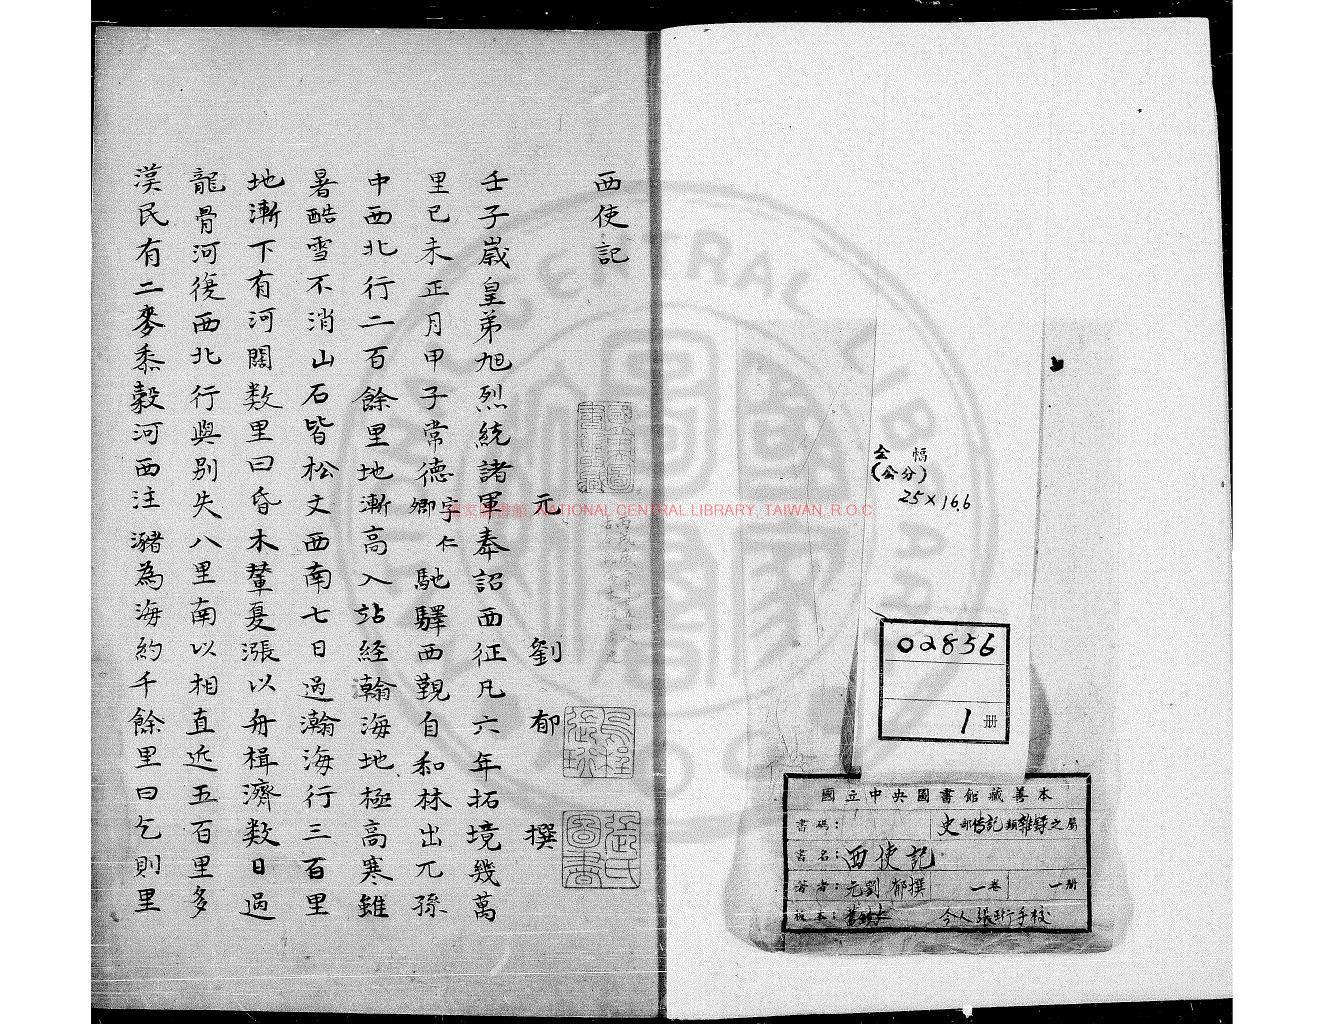 全幅
(公分)
25×16.6
02856
1冊
國立中央圖書館藏善本
書碼：
史部傳記類雜錄之屬
書名：西使記
著者：元劉郁撰 一卷 一册
板本：舊鈔本 今人張珩手校
西使記
元 劉 郁 撰
壬子嵗皇弟旭烈統諸軍奉詔西征凡六年拓境幾萬
里已未正月甲子常德字仁卿馳驛西覲自和林出兀孫
中西北行二百餘里地漸高入站経瀚海地極高寒雖
暑酷雪不消山石皆松文西南七日過瀚海行三百里
地漸下有河闊数里曰昏木輦夏漲以舟楫濟数日過
龍骨河復西北行與别失八里南以相直近五百里多
漢民有二麥黍穀河西注瀦為海約千餘里曰乞則里
NATIONAL CENTRAL LIBRARY, TAIWAN, R.O.C